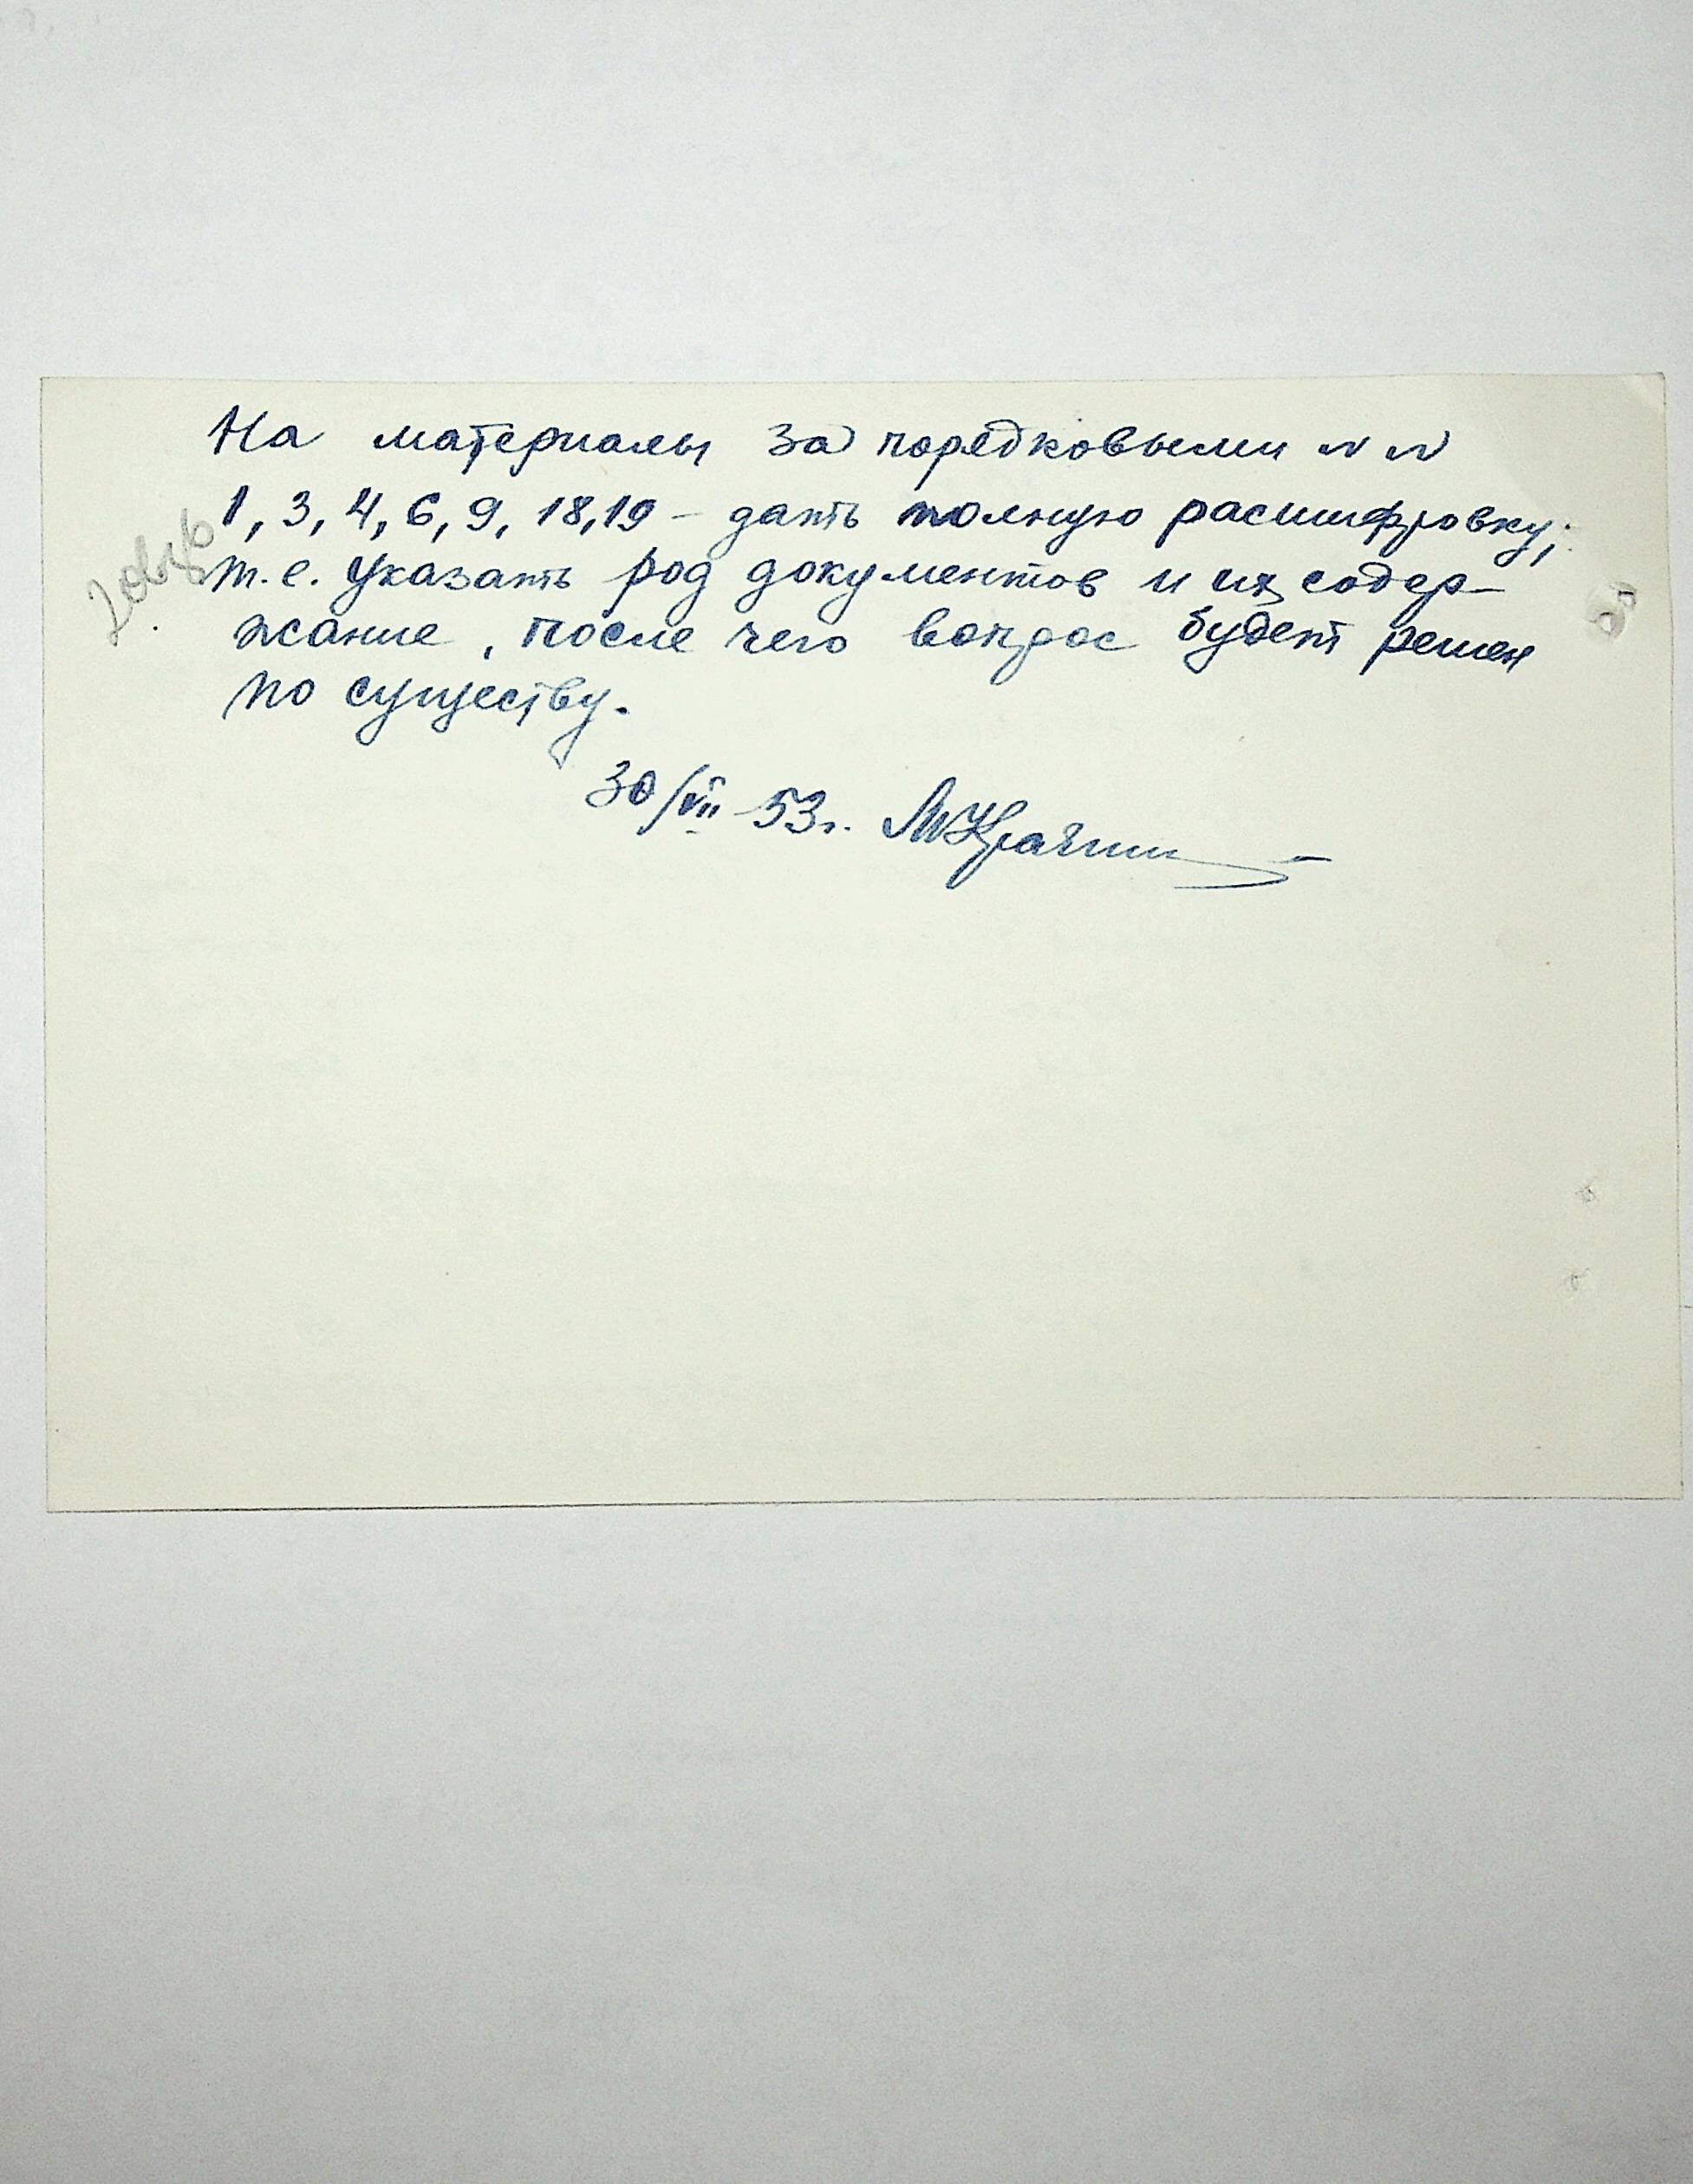 На материалы за порядковыми N N
1, 3, 4, 6, 9, 18, 19 – дать полную расшифровку,
т.е. указать род документов и их содер-
жание, после чего вопрос будет решен
по существу.
30/VII 53г.